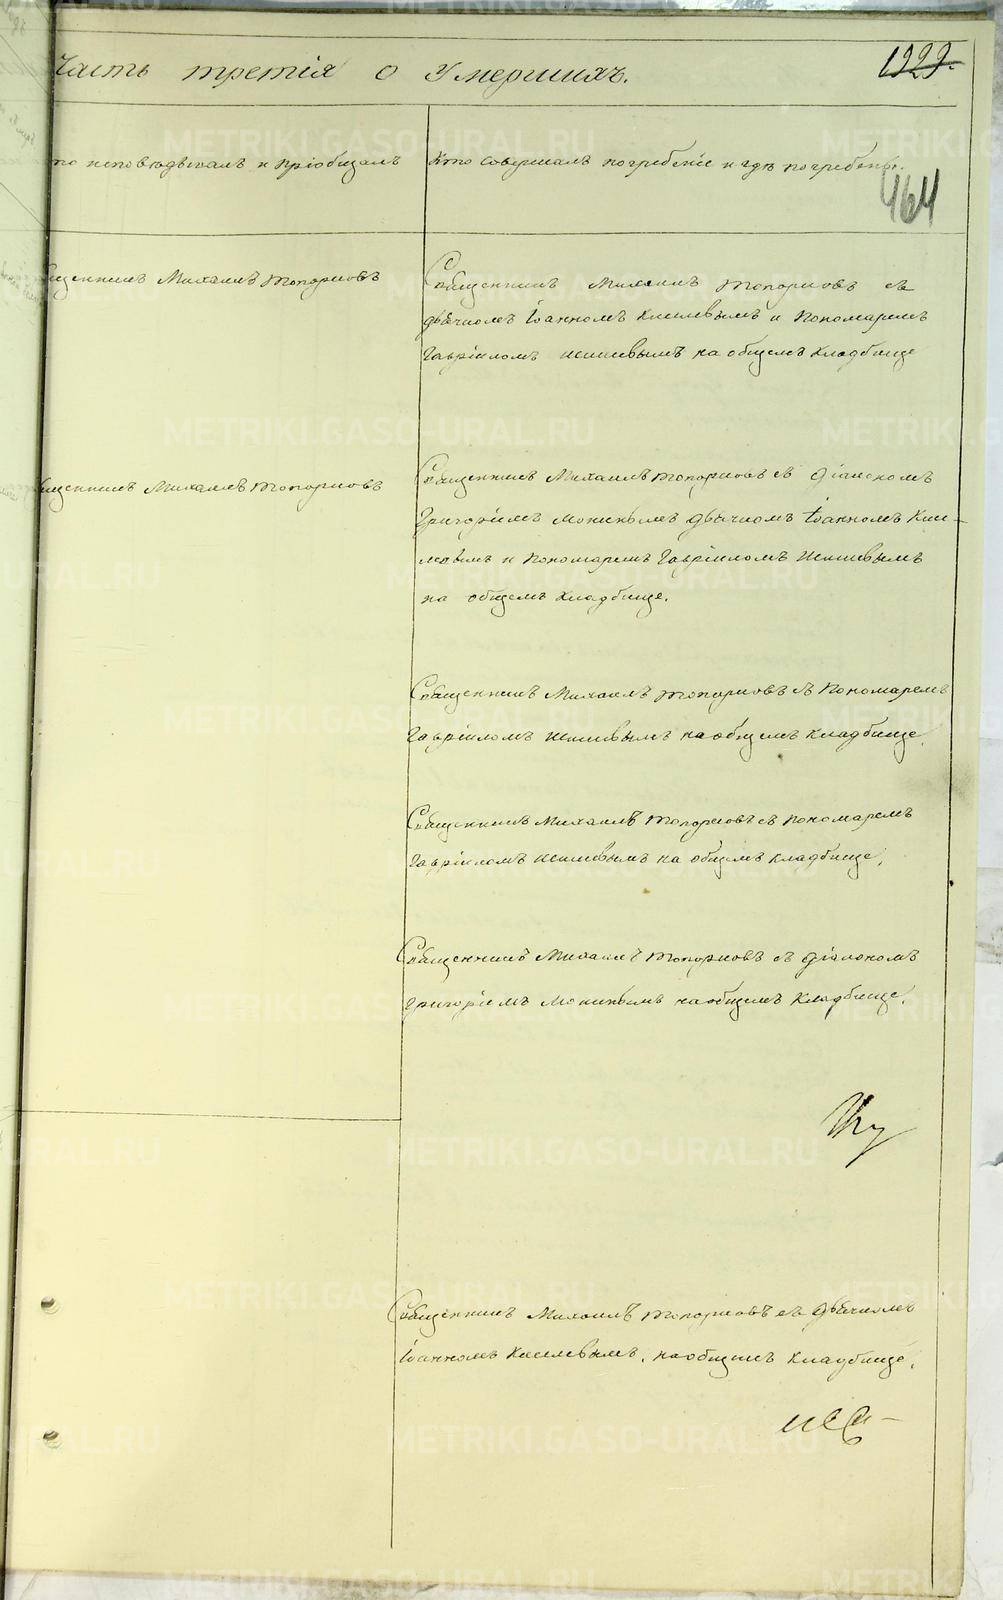 Часть третія о Умершихъ.
1929.
464
то исповѣдывалъ и пріобщалъ
Кто совершалъ погребеніе и гдѣ погребены.
щенникъ Михаилъ Топорковъ
Священникъ Михаилъ Топорковъ съ
дьячкомъ Іоанномъ Киселевымъ и Пономаремъ
Гавріиломъ на общемъ кладбище
щенникъ Михаилъ Топорковъ
Священникъ Михаилъ Топорковъ съ діакономъ
Григоріемъ дьячкомъ Іоанномъ Кисе-
левымъ и Пономаремъ Гавріиломъ
на общемъ кладбище.
Священникъ Михаилъ Топорковъ съ Пономаремъ
Гавріиломъ на общемъ кладбище.
Священникъ Михаилъ Топорковъ съ Пономаремъ
Гавріиломъ на общемъ кладбище.
Священникъ Михаилъ Топорковъ съ діакономъ
Григоріемъ на общемъ кладбище.
Священникъ Михаилъ Топорковъ съ дьячкомъ
Іоанномъ Киселевымъ, на общемъ кладбище.
METRIKI.GASO-URAL.RU